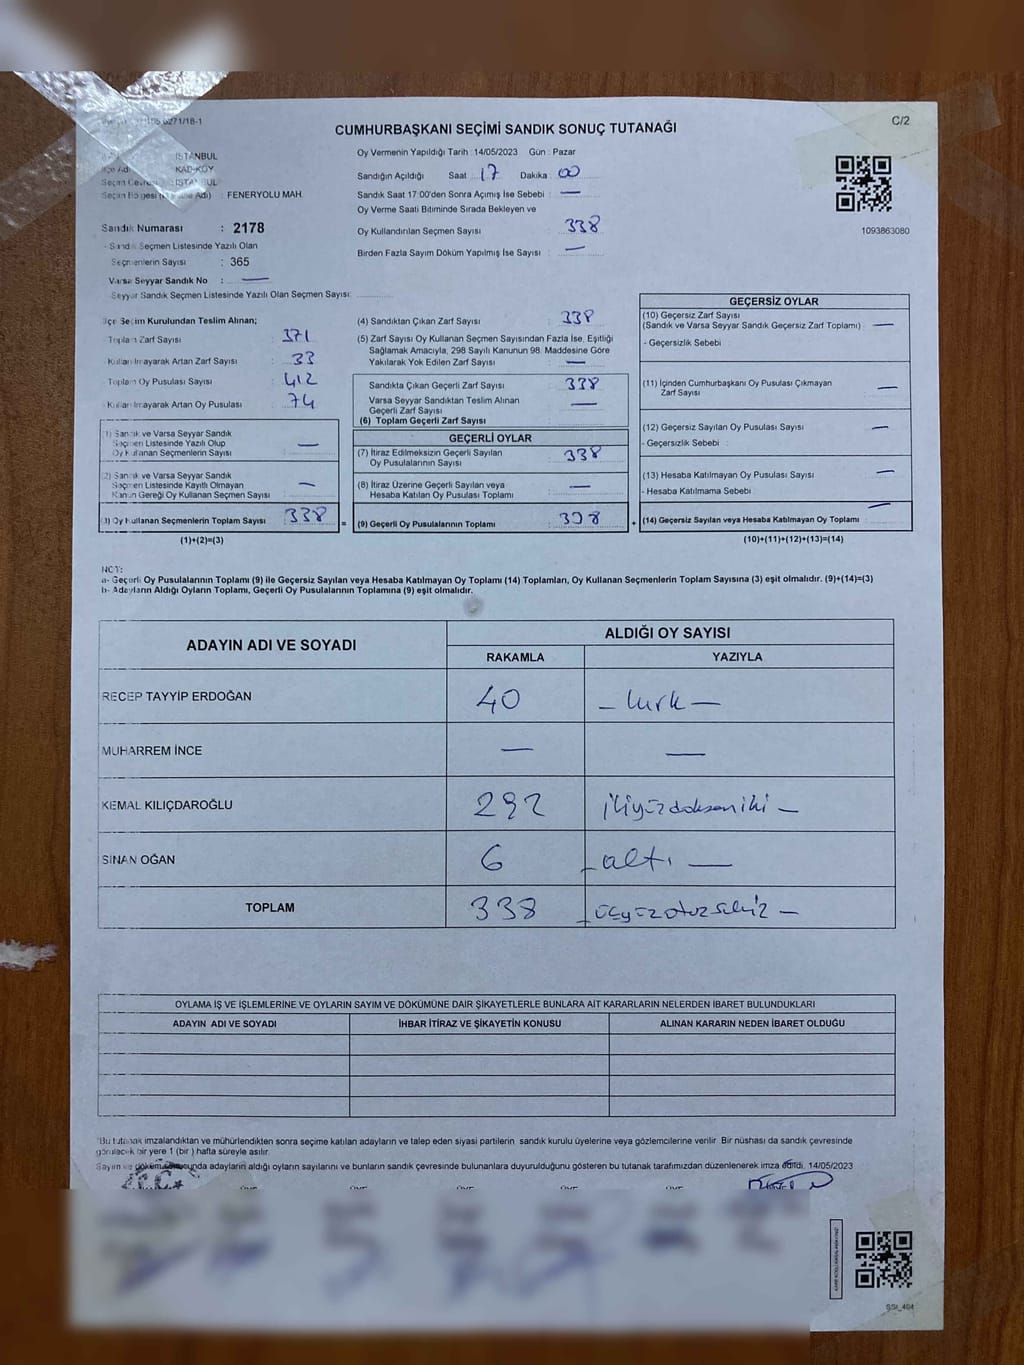 C/2
CUMHURBAŞKANI SEÇİMİ SANDIK SONUÇ TUTANAĞI
İSTANBUL
KADIKÖY
İSTANBUL
: FENERYOLU MAH.
Sandık Numarası : 2178
- Sandık Seçmen Listesinde Yazılı Olan
Seçmenlerin Sayısı : 365
Varsa Seyyar Sandık No : —
Seyyar Sandık Seçmen Listesinde Yazılı Olan Seçmen Sayısı:
Oy Vermenin Yapıldığı Tarih : 14/05/2023 Gün : Pazar
Sandığın Açıldığı Saat 17 Dakika : 00
Sandık Saat 17:00'den Sonra Açımış İse Sebebi : —
Oy Verme Saati Bitiminde Sırada Bekleyen ve
Oy Kullandırılan Seçmen Sayısı : 338
Birden Fazla Sayım Döküm Yapılmış İse Sayısı : —
1093863080
İlçe Seçim Kurulundan Teslim Alınan;
Toplam Zarf Sayısı : 371
Kullanılmayarak Artan Zarf Sayısı : 33
Toplam Oy Pusulası Sayısı : 412
Kullanılmayarak Artan Oy Pusulası : 74
(1) Sandık ve Varsa Seyyar Sandık
Seçmen Listesinde Yazılı Olup
Oy Kullanan Seçmenlerin Sayısı : —
(2) Sandık ve Varsa Seyyar Sandık
Seçmen Listesinde Kayıtlı Olmayan
Kanun Gereği Oy Kullanan Seçmen Sayısı : —
(3) Oy Kullanan Seçmenlerin Toplam Sayısı : 338 =
(1)+(2)=(3)
(4) Sandıktan Çıkan Zarf Sayısı : 338
(5) Zarf Sayısı Oy Kullanan Seçmen Sayısından Fazla İse, Eşitliği
Sağlamak Amacıyla, 298 Sayılı Kanunun 98. Maddesine Göre
Yakılarak Yok Edilen Zarf Sayısı : —
Sandıkta Çıkan Geçerli Zarf Sayısı : 338
Varsa Seyyar Sandıktan Teslim Alınan
Geçerli Zarf Sayısı : —
(6) Toplam Geçerli Zarf Sayısı :
GEÇERLİ OYLAR
(7) İtiraz Edilmeksizin Geçerli Sayılan
Oy Pusulalarının Sayısı : 338
(8) İtiraz Üzerine Geçerli Sayılan veya
Hesaba Katılan Oy Pusulası Toplamı : —
(9) Geçerli Oy Pusulalarının Toplamı : 338 +
GEÇERSİZ OYLAR
(10) Geçersiz Zarf Sayısı
(Sandık ve Varsa Seyyar Sandık Geçersiz Zarf Toplamı) : —
- Geçersizlik Sebebi :
(11) İçinden Cumhurbaşkanı Oy Pusulası Çıkmayan
Zarf Sayısı : —
(12) Geçersiz Sayılan Oy Pusulası Sayısı : —
- Geçersizlik Sebebi :
(13) Hesaba Katılmayan Oy Pusulası Sayısı : —
- Hesaba Katılmama Sebebi :
(14) Geçersiz Sayılan veya Hesaba Katılmayan Oy Toplamı : —
(10)+(11)+(12)+(13)=(14)
NOT:
a- Geçerli Oy Pusulalarının Toplamı (9) ile Geçersiz Sayılan veya Hesaba Katılmayan Oy Toplamı (14) Toplamları, Oy Kullanan Seçmenlerin Toplam Sayısına (3) eşit olmalıdır. (9)+(14)=(3)
b- Adayların Aldığı Oyların Toplamı, Geçerli Oy Pusulalarının Toplamına (9) eşit olmalıdır.
ADAYIN ADI VE SOYADI
ALDIĞI OY SAYISI
RAKAMLA YAZIYLA
RECEP TAYYİP ERDOĞAN 40 – kırk —
MUHARREM İNCE — —
KEMAL KILIÇDAROĞLU 292 ikiyüzdoksaniki –
SİNAN OĞAN 6 – altı —
TOPLAM 338 – üçyüzotuzsekiz –
OYLAMA İŞ VE İŞLEMLERİNE VE OYLARIN SAYIM VE DÖKÜMÜNE DAİR ŞİKAYETLERLE BUNLARA AİT KARARLARIN NELERDEN İBARET BULUNDUKLARI
ADAYIN ADI VE SOYADI İHBAR İTİRAZ VE ŞİKAYETİN KONUSU ALINAN KARARIN NEDEN İBARET OLDUĞU
*Bu tutanak imzalandıktan ve mühürlendikten sonra seçime katılan adayların ve talep eden siyasi partilerin sandık kurulu üyelerine veya gözlemcilerine verilir. Bir nüshası da sandık çevresinde
görülecek bir yere 1 (bir ) hafta süreyle asılır.
Sayım ve döküm sonucunda adayların aldığı oyların sayılarını ve bunların sandık çevresinde bulunanlara duyurulduğunu gösteren bu tutanak tarafımızdan düzenlenerek imza edildi. 14/05/2023